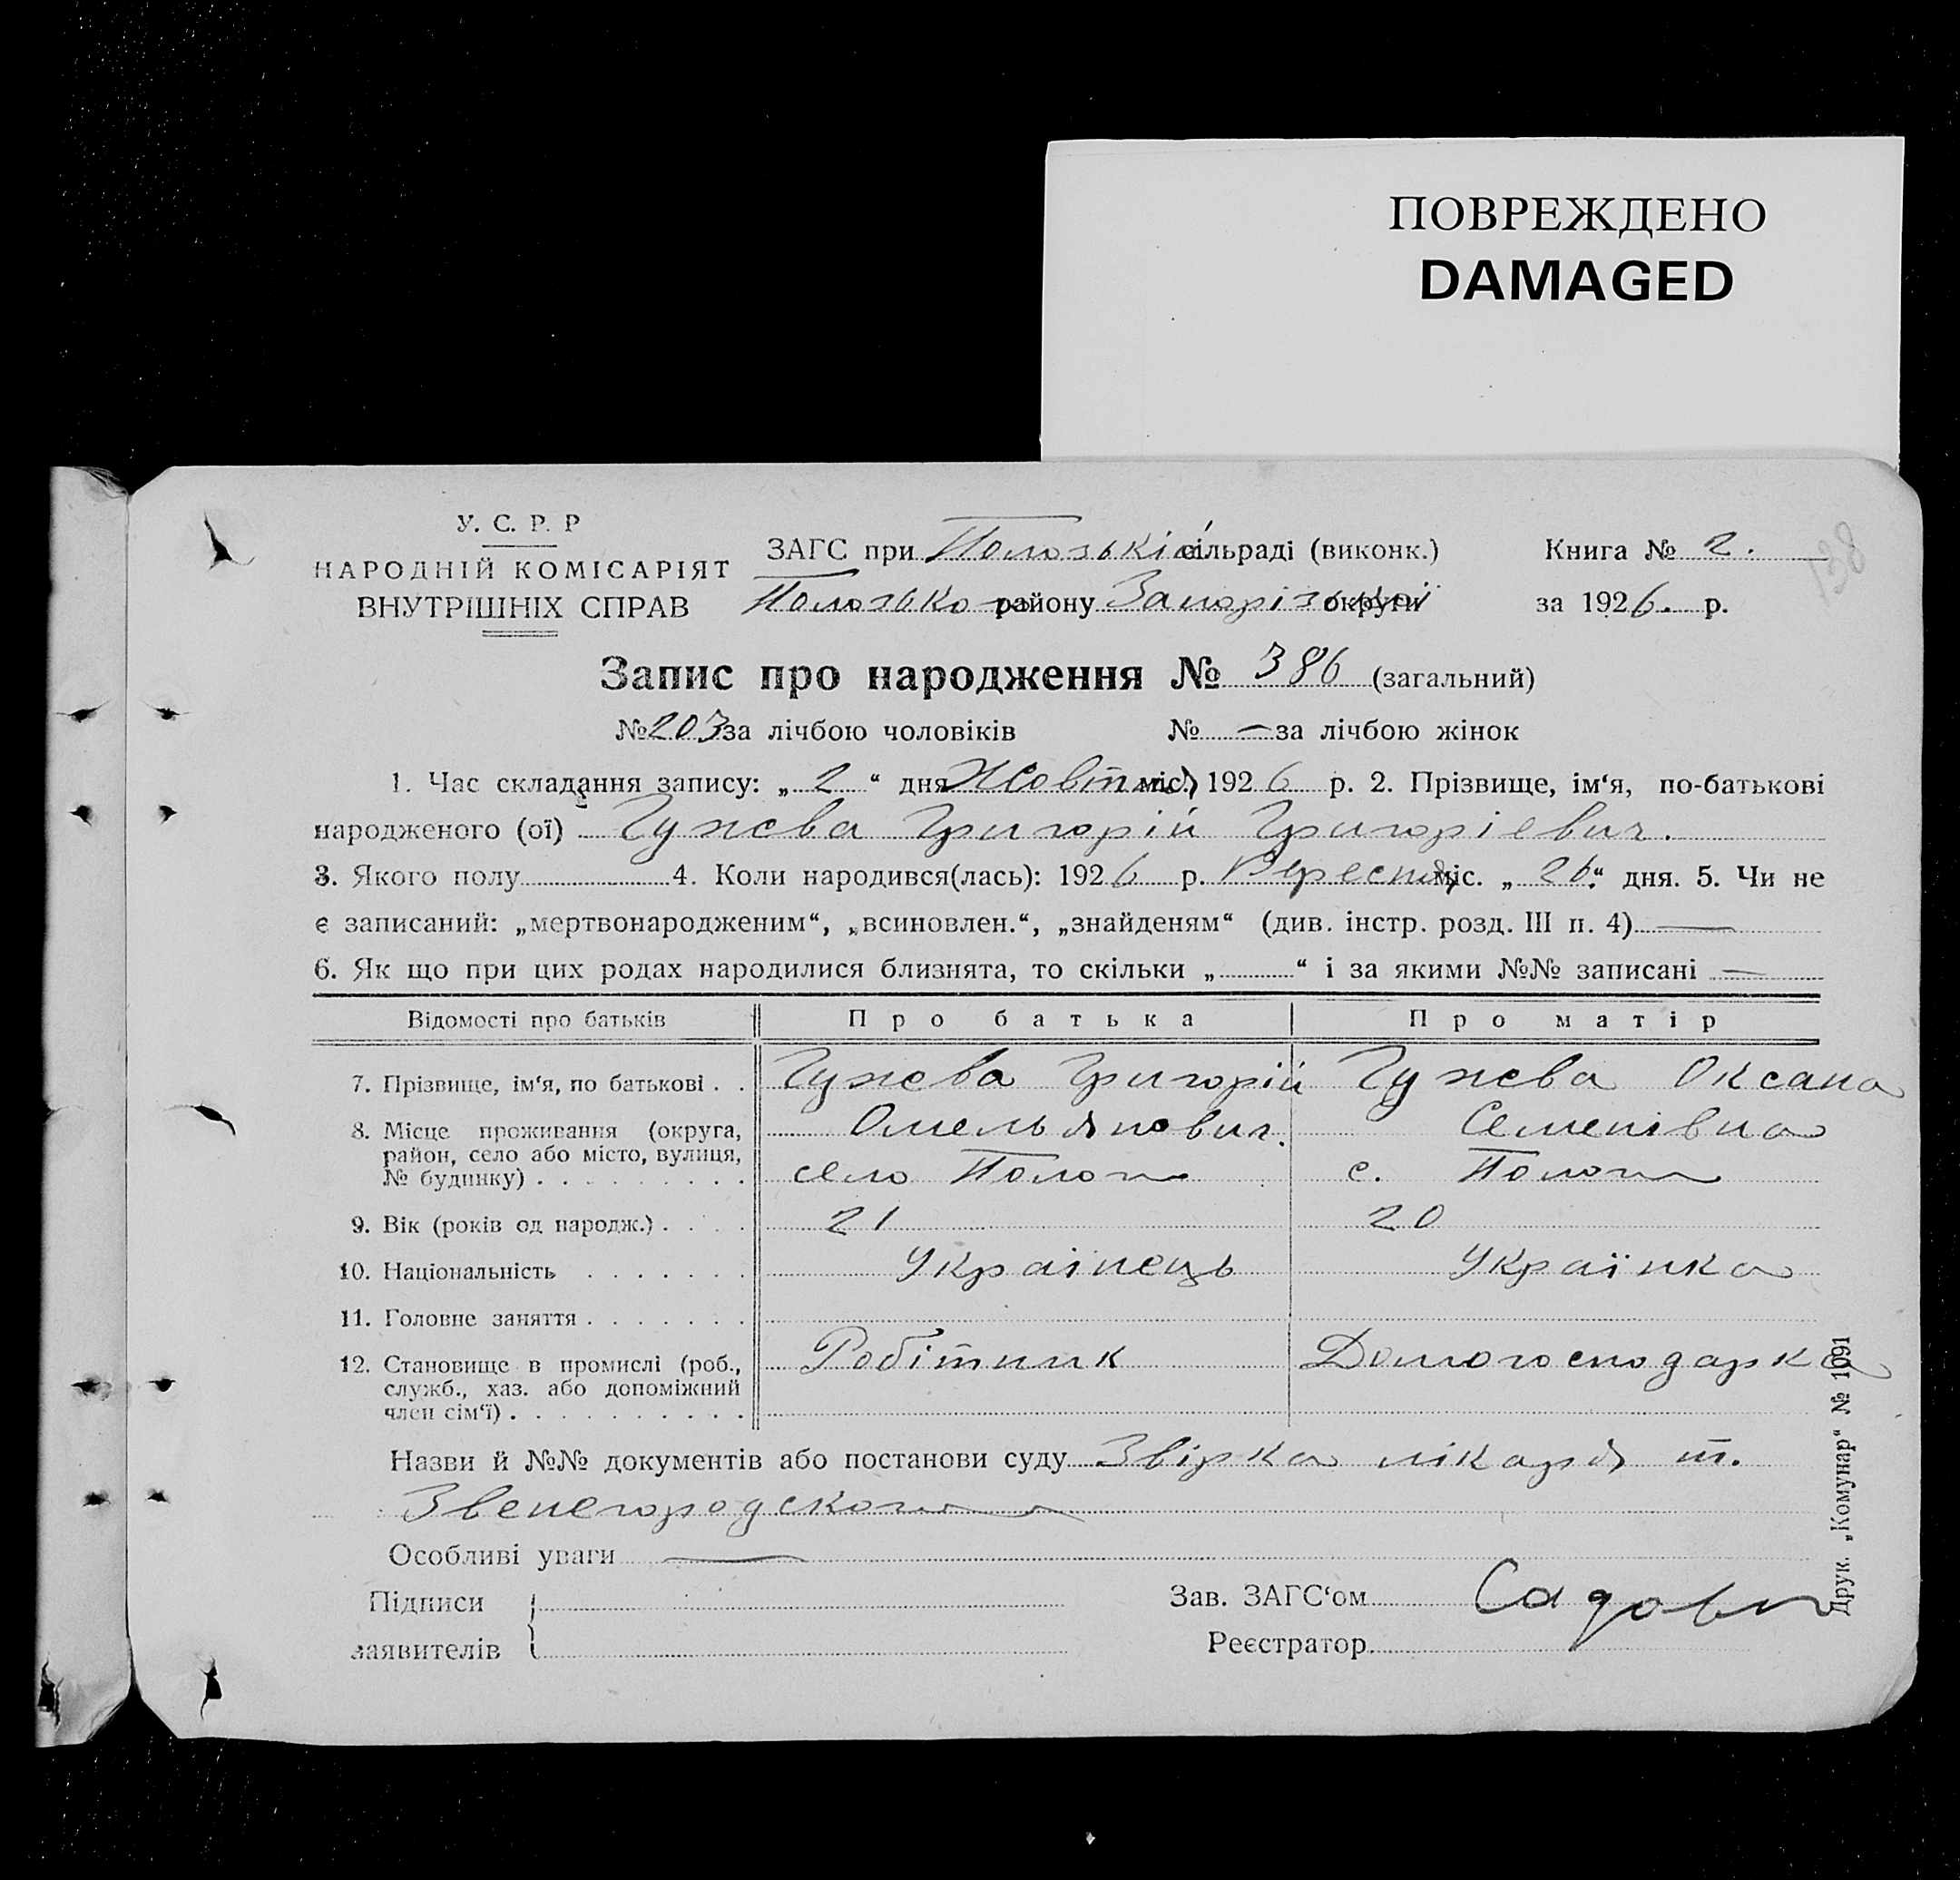 ПОВРЕЖДЕНО
DAMAGED
138
У. С. Р. Р
НАРОДНІЙ КОМІСАРІЯТ
ВНУТРІШНІХ СПРАВ
ЗАГС при Пологській сільраді (виконк.)
Книга № 2.
району Запорізької округи
за 1926. р.
Запис про народження № 386 (загальний)
№ 203 за лічбою чоловіків № — за лічбою жінок
1. Час складання запису: „ 2 “ дня Жовтня міс. 1926 р. 2. Прізвище, ім‘я, по-батькові
народженого (ої) Гужева Григорій Григоріевич.
3. Якого полу 4. Коли народився(лась): 1926 р. Вересня міс. „ 26. “ дня. 5. Чи не
є записаний: „мертвонародженим“, „всиновлен.“, „знайденям“ (див. інстр. розд. III п. 4) —
6. Як що при цих родах народилися близнята, то скільки „ “ і за якими №№ записані —
Відомості про батьків Про батька Про матір
7. Прізвище, ім‘я, по батькові . . Гужева Григорій Гужева Оксана
8. Місце проживання (округа, Омельянович. Семенівна
район, село або місто, вулиця,
№ будинку) . . . . . . . . . село Пологи с. Пологи
9. Вік (років од народж.) . . . . 21 20
10. Національність . . . . . . . Українець Українка
11. Головне заняття . . . . . . .
12. Становище в промислі (роб., Робітник Домогосподарка
служб., хаз. або допоміжний
член сім‘ї) . . . . . . . . . .
Назви й №№ документів або постанови суду лікаря т.
Звенегородского
Особливі уваги —
Підписи
заявителів
Зав. ЗАГС‘ом
Реєстратор
Друк. „Комунар“ № 1091